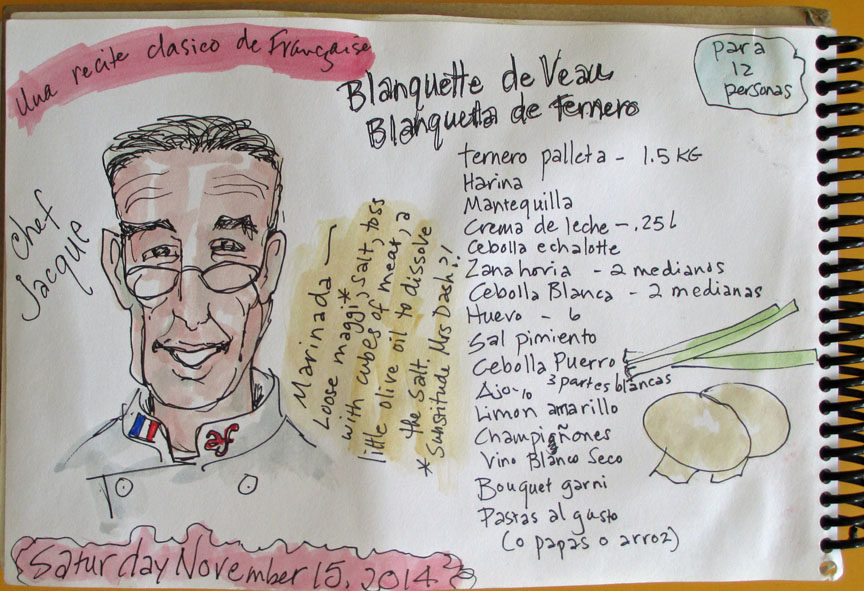 Una recite clasico de Française
Blanquette de Veau
Blanquetta de Ternero
para
12
personas
Chef
Jacque
Marinada —
Loose maggi*, Salt, toss
with cubes of meat, a
little olive oil to dissolve
the salt.
*Substitude Mrs Dash?!
ternero palleta - 1.5 KG
Harina
Mantequilla
Crema de leche - .25 l
Cebolla echalotte
Zanahoria - 2 medianos
Cebolla Blanca - 2 medianas
Huevo - 6
Sal pimiento
Cebolla Puerro
3 partes blancas
Ajo - 10
Limon amarillo
Champigñones
Vino Blanco Seco
Bouquet garni
Pastas al gusto
(o papas o arroz)
af
Saturday November 15, 2014